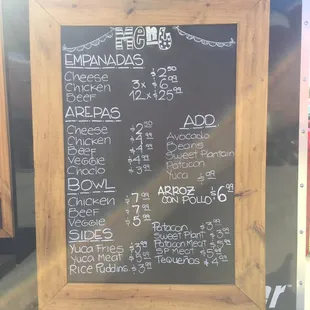 Menu
EMPANADAS
Cheese $2.50
Chicken 3x $6.99
Beef 12x $25.99
AREPAS
Cheese $2.50
Chicken $4.99
Beef $4.99
Veggie $4.99
Choclo $3.99
BOWL
Chicken $7.99
Beef $7.99
Veggie $5.99
SIDES
Yuca Fries $3.99
Yuca Meat $5.99
Rice Pudding $3.99
ADD
Avocado
Beans
Sweet Plantain
Patacon
Yuca
ARROZ
CON POLLO $6.99
Patacon $3.99
Sweet Plant $3.99
Patacon Meat $5.99
SP Meat $5.99
Tequeños $4.99